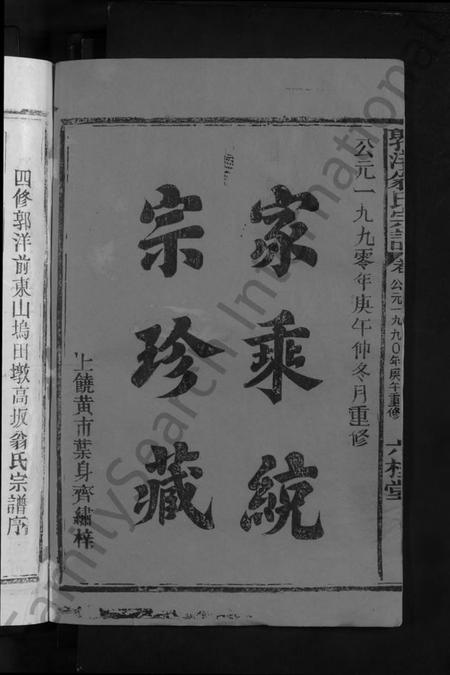 郭洋翁氏宗譜 卷 公元一九九〇年庚午重修 六桂堂
公元一九九零年庚午仲冬月重修
家乘統
宗珍藏
上饒黃市葉身齊繡梓
四修郭洋前東山塢田墩高坂翁氏宗譜序
FamilySearch International